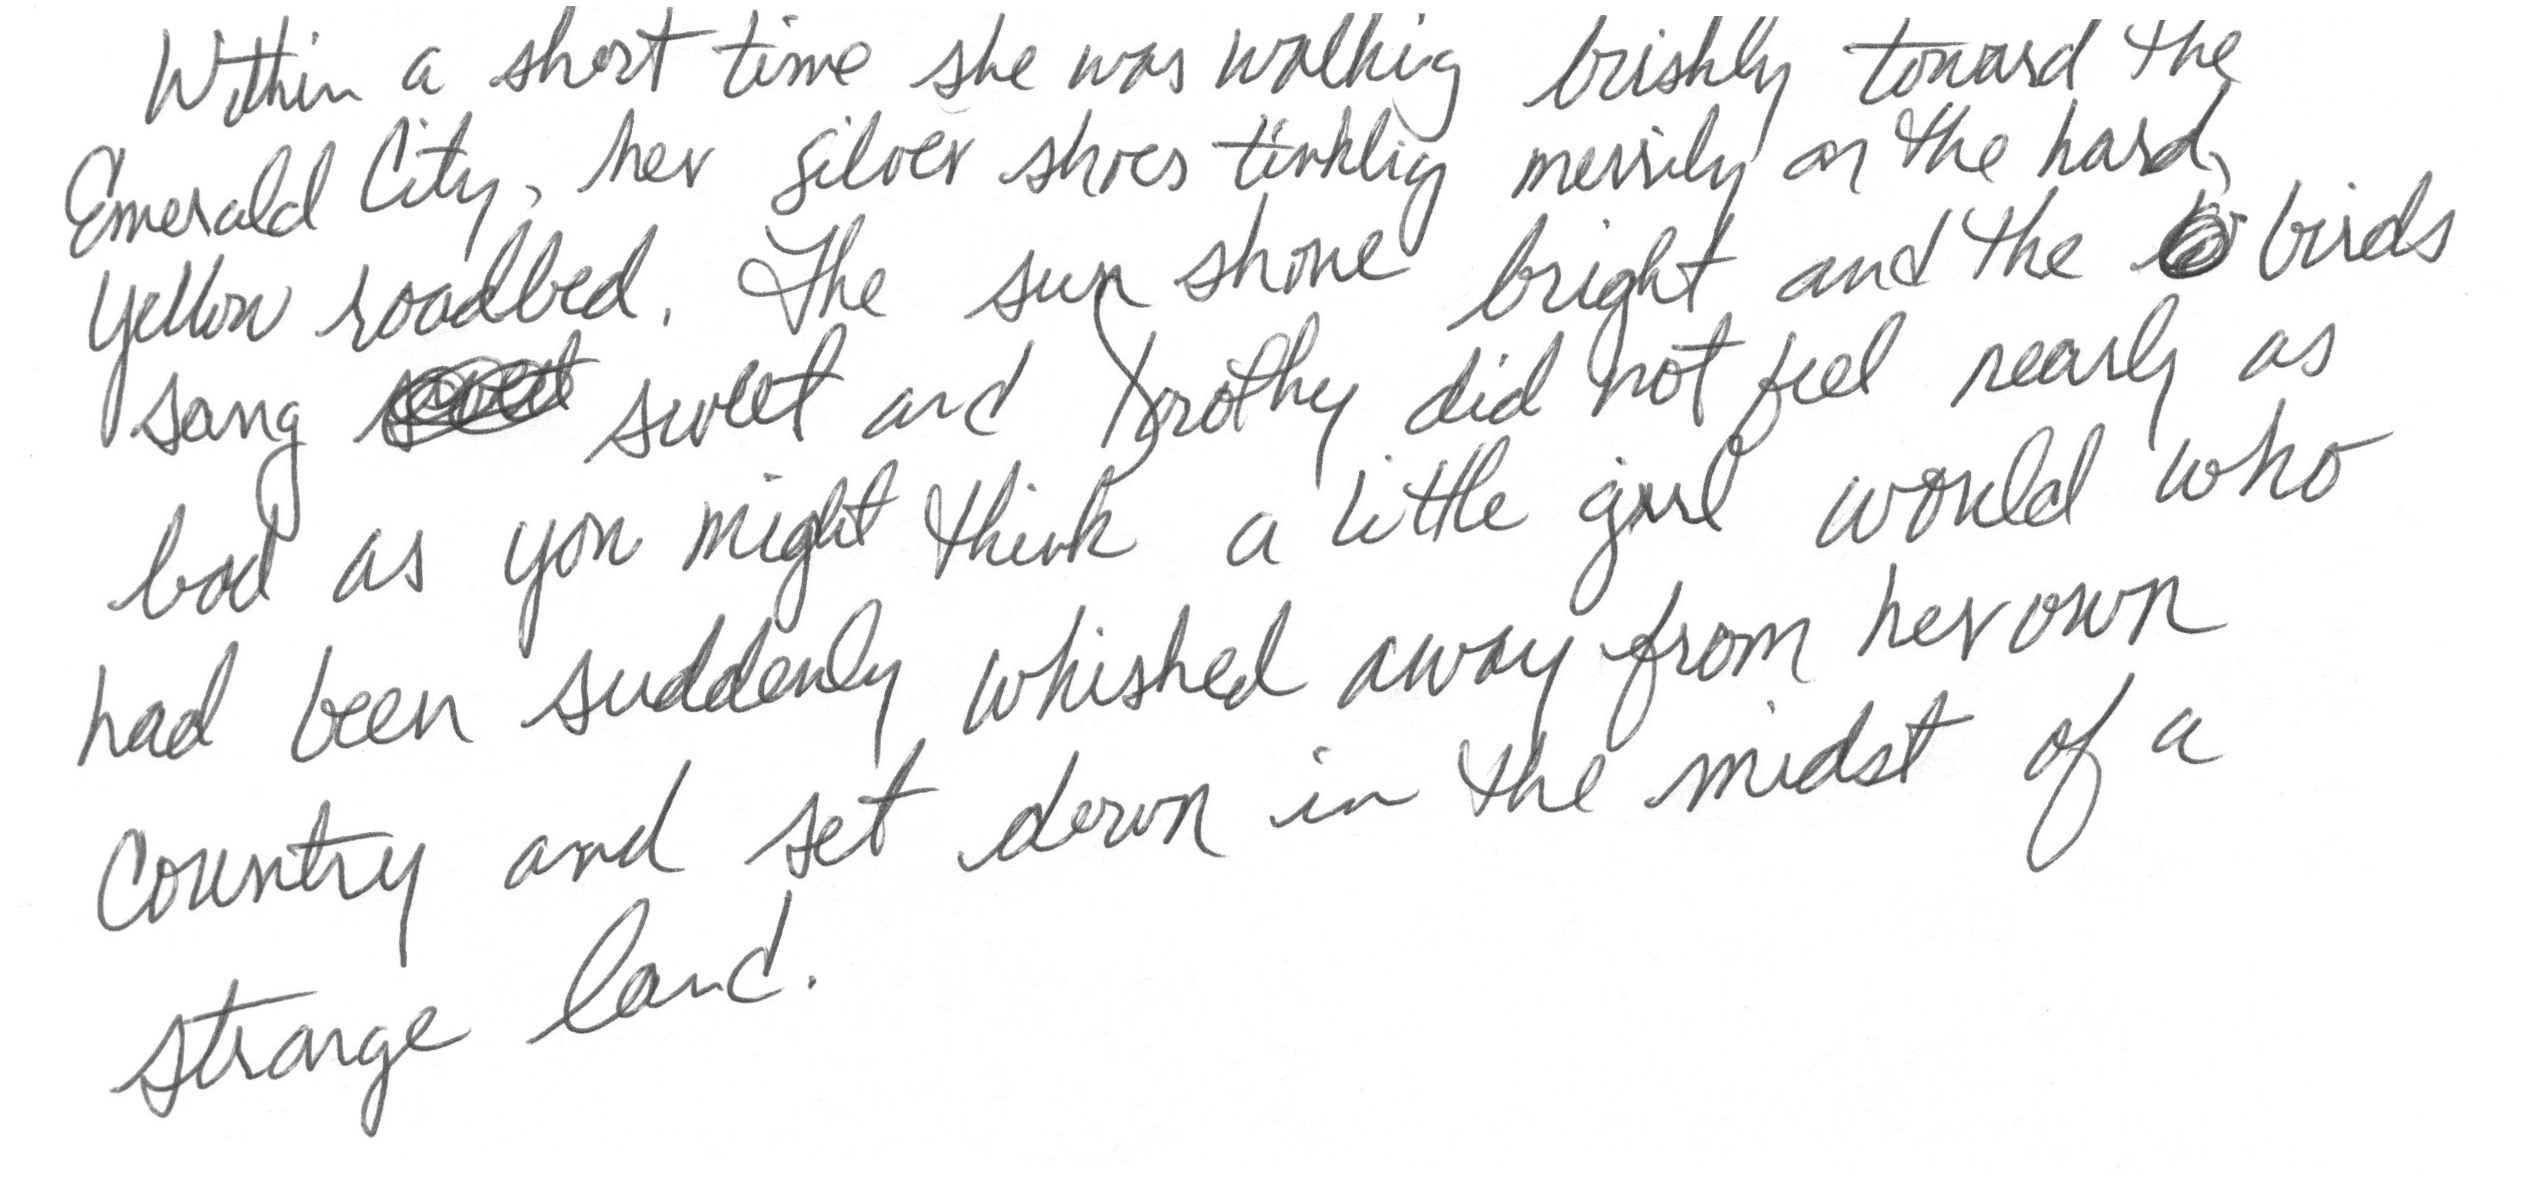 Within a short time she was walking briskly toward the
Emerald City, her silver shoes tinkling merrily on the hard,
yellow roadbed. The sun shone bright and the birds
sang sweet and Dorothy did not feel nearly as
bad as you might think a little girl would who
had been suddenly whished away from her own
country and set down in the midst of a
strange land.